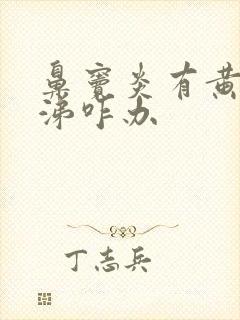 鼻窦炎有黄
涕咋办
丁志兵